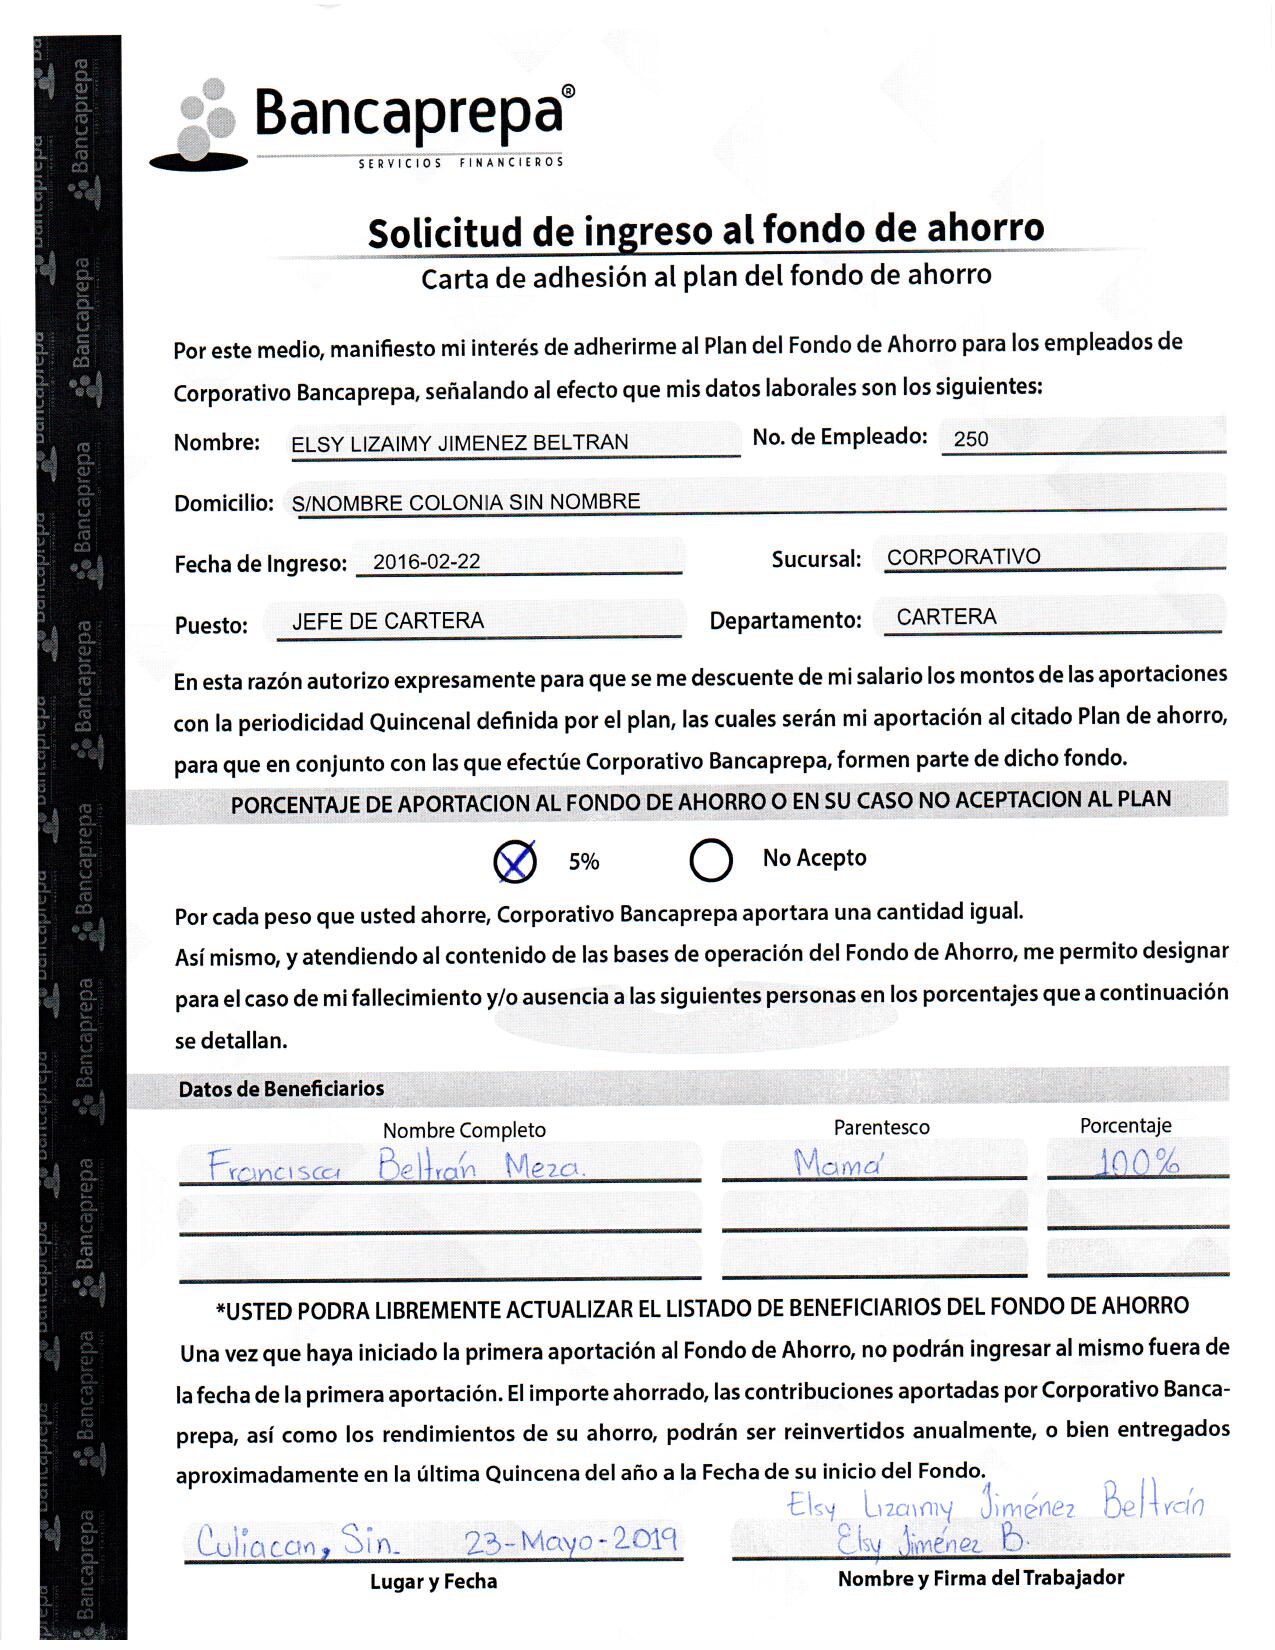 Bancaprepa®
SERVICIOS FINANCIEROS
Solicitud de ingreso al fondo de ahorro
Carta de adhesión al plan del fondo de ahorro
Por este medio, manifiesto mi interés de adherirme al Plan del Fondo de Ahorro para los empleados de
Corporativo Bancaprepa, señalando al efecto que mis datos laborales son los siguientes:
Nombre: ELSY LIZAIMY JIMENEZ BELTRAN No. de Empleado: 250
Domicilio: S/NOMBRE COLONIA SIN NOMBRE
Fecha de Ingreso: 2016-02-22 Sucursal: CORPORATIVO
Puesto: JEFE DE CARTERA Departamento: CARTERA
En esta razón autorizo expresamente para que se me descuente de mi salario los montos de las aportaciones
con la periodicidad Quincenal definida por el plan, las cuales serán mi aportación al citado Plan de ahorro,
para que en conjunto con las que efectúe Corporativo Bancaprepa, formen parte de dicho fondo.
PORCENTAJE DE APORTACION AL FONDO DE AHORRO O EN SU CASO NO ACEPTACION AL PLAN
5% No Acepto
Por cada peso que usted ahorre, Corporativo Bancaprepa aportara una cantidad igual.
Así mismo, y atendiendo al contenido de las bases de operación del Fondo de Ahorro, me permito designar
para el caso de mi fallecimiento y/o ausencia a las siguientes personas en los porcentajes que a continuación
se detallan.
Datos de Beneficiarios
Nombre Completo Parentesco Porcentaje
Francisca Beltrán Meza. Mamá 100%
*USTED PODRA LIBREMENTE ACTUALIZAR EL LISTADO DE BENEFICIARIOS DEL FONDO DE AHORRO
Una vez que haya iniciado la primera aportación al Fondo de Ahorro, no podrán ingresar al mismo fuera de
la fecha de la primera aportación. El importe ahorrado, las contribuciones aportadas por Corporativo Banca-
prepa, así como los rendimientos de su ahorro, podrán ser reinvertidos anualmente, o bien entregados
aproximadamente en la última Quincena del año a la Fecha de su inicio del Fondo.
Elsy Lizaimy Jiménez Beltrán
Culiacan, Sin. 23-Mayo-2019 Elsy Jiménez B.
Lugar y Fecha Nombre y Firma del Trabajador